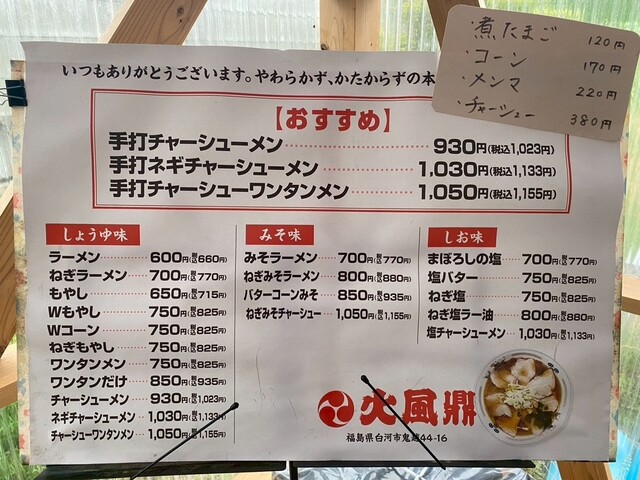 いつもありがとうございます。やわらかず、かたからずの本
・煮たまご 120円
・コーン 170円
・メンマ 220円
・チャーシュー 380円
【おすすめ】
手打チャーシューメン 930円(税込1,023円)
手打ネギチャーシューメン 1,030円(税込1,133円)
手打チャーシューワンタンメン 1,050円(税込1,155円)
しょうゆ味
ラーメン 600円(税込660円)
ねぎラーメン 700円(税込770円)
もやし 650円(税込715円)
Wもやし 750円(税込825円)
Wコーン 750円(税込825円)
ねぎもやし 750円(税込825円)
ワンタンメン 750円(税込825円)
ワンタンだけ 850円(税込935円)
チャーシューメン 930円(税込1,023円)
ネギチャーシューメン 1,030円(税込1,133円)
チャーシューワンタンメン 1,050円(税込1,155円)
みそ味
みそラーメン 700円(税込770円)
ねぎみそラーメン 800円(税込880円)
バターコーンみそ 850円(税込935円)
ねぎみそチャーシュー 1,050円(税込1,155円)
しお味
まぼろしの塩 700円(税込770円)
塩バター 750円(税込825円)
ねぎ塩 750円(税込825円)
ねぎ塩ラー油 800円(税込880円)
塩チャーシューメン 1,030円(税込1,133円)
火風鼎
福島県白河市鬼越44-16